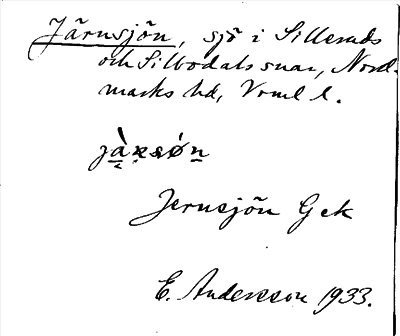 Järnsjön, sjö i Silleruds
och Silbodals snar, Nord-
marks hd, Vrml l.
Jernsjön Gek
E. Andersson 1933.